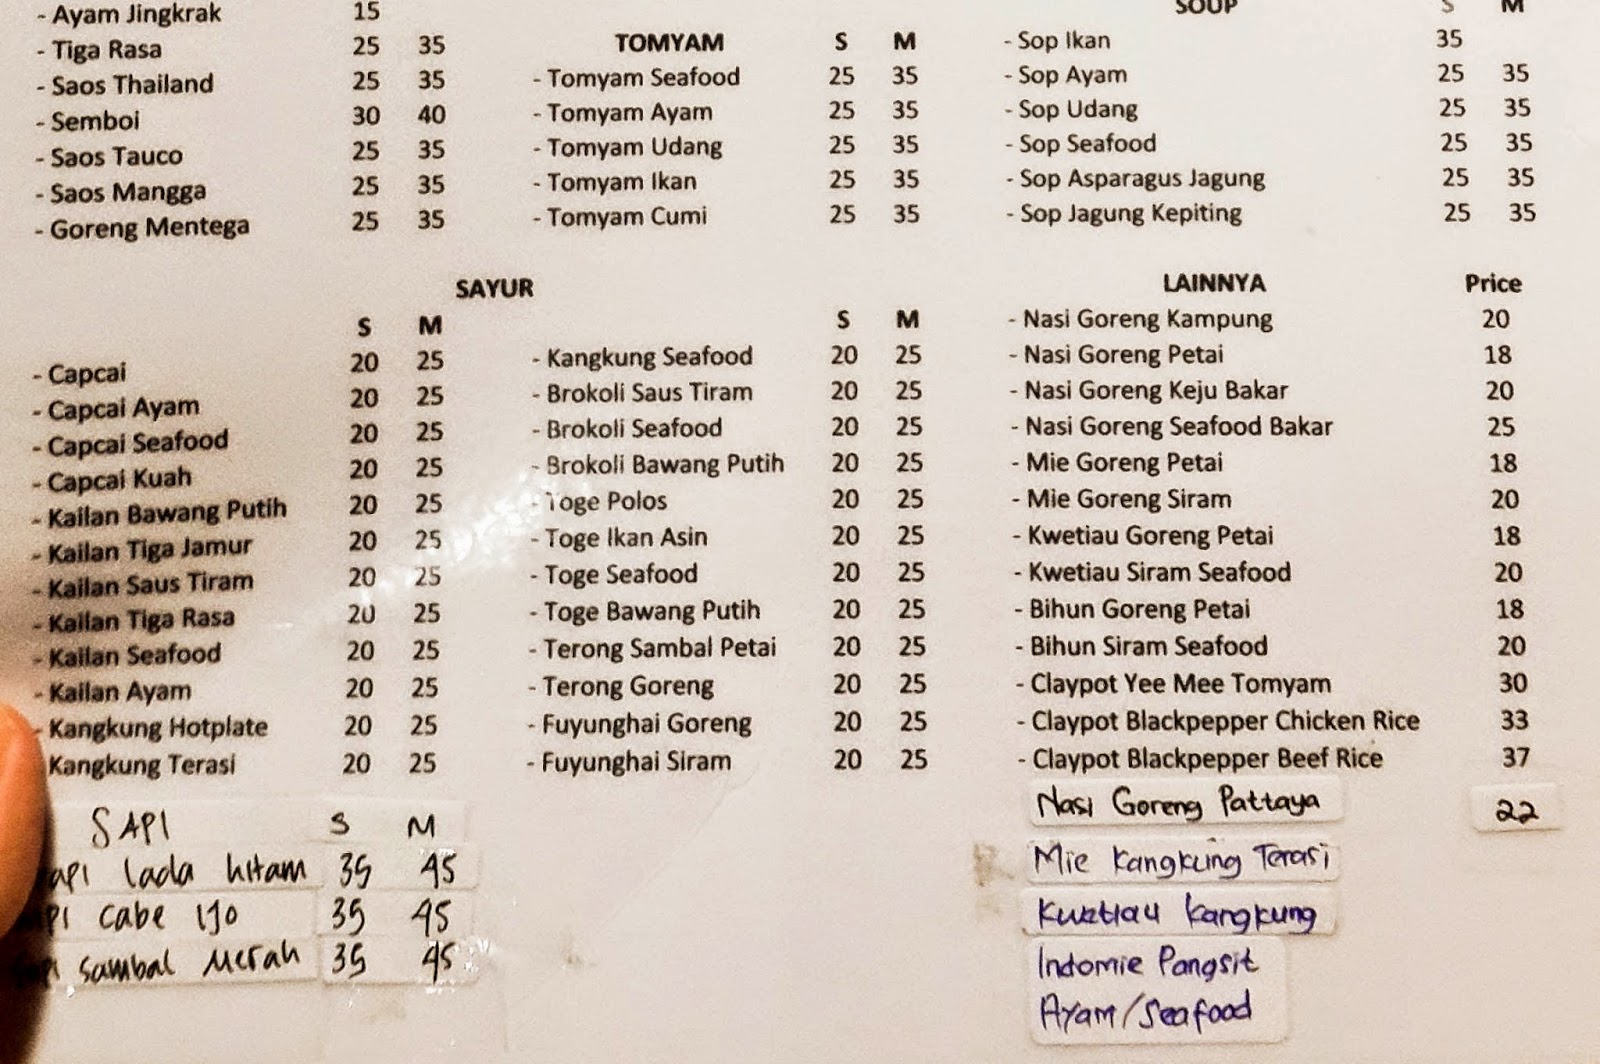 - Ayam Jingkrak 15
- Tiga Rasa 25 35
- Saos Thailand 25 35
- Semboi 30 40
- Saos Tauco 25 35
- Saos Mangga 25 35
- Goreng Mentega 25 35
TOMYAM S M
- Tomyam Seafood 25 35
- Tomyam Ayam 25 35
- Tomyam Udang 25 35
- Tomyam Ikan 25 35
- Tomyam Cumi 25 35
SOUP S M
- Sop Ikan 35
- Sop Ayam 25 35
- Sop Udang 25 35
- Sop Seafood 25 35
- Sop Asparagus Jagung 25 35
- Sop Jagung Kepiting 25 35
SAYUR
S M
- Capcai 20 25
- Capcai Ayam 20 25
- Capcai Seafood 20 25
- Capcai Kuah 20 25
- Kailan Bawang Putih 20 25
- Kailan Tiga Jamur 20 25
- Kailan Saus Tiram 20 25
- Kailan Tiga Rasa 20 25
- Kailan Seafood 20 25
- Kailan Ayam 20 25
- Kangkung Hotplate 20 25
Kangkung Terasi 20 25
S M
- Kangkung Seafood 20 25
- Brokoli Saus Tiram 20 25
- Brokoli Seafood 20 25
- Brokoli Bawang Putih 20 25
- Toge Polos 20 25
- Toge Ikan Asin 20 25
- Toge Seafood 20 25
- Toge Bawang Putih 20 25
- Terong Sambal Petai 20 25
- Terong Goreng 20 25
- Fuyunghai Goreng 20 25
- Fuyunghai Siram 20 25
LAINNYA Price
- Nasi Goreng Kampung 20
- Nasi Goreng Petai 18
- Nasi Goreng Keju Bakar 20
- Nasi Goreng Seafood Bakar 25
- Mie Goreng Petai 18
- Mie Goreng Siram 20
- Kwetiau Goreng Petai 18
- Kwetiau Siram Seafood 20
- Bihun Goreng Petai 18
- Bihun Siram Seafood 20
- Claypot Yee Mee Tomyam 30
- Claypot Blackpepper Chicken Rice 33
- Claypot Blackpepper Beef Rice 37
Nasi Goreng Pattaya 22
Mie Kangkung Terasi
Kwetiau Kangkung
Indomie Pangsit
Ayam/Seafood
SAPI S M
api lada hitam 35 45
pi cabe ijo 35 45
pi sambal Merah 35 45